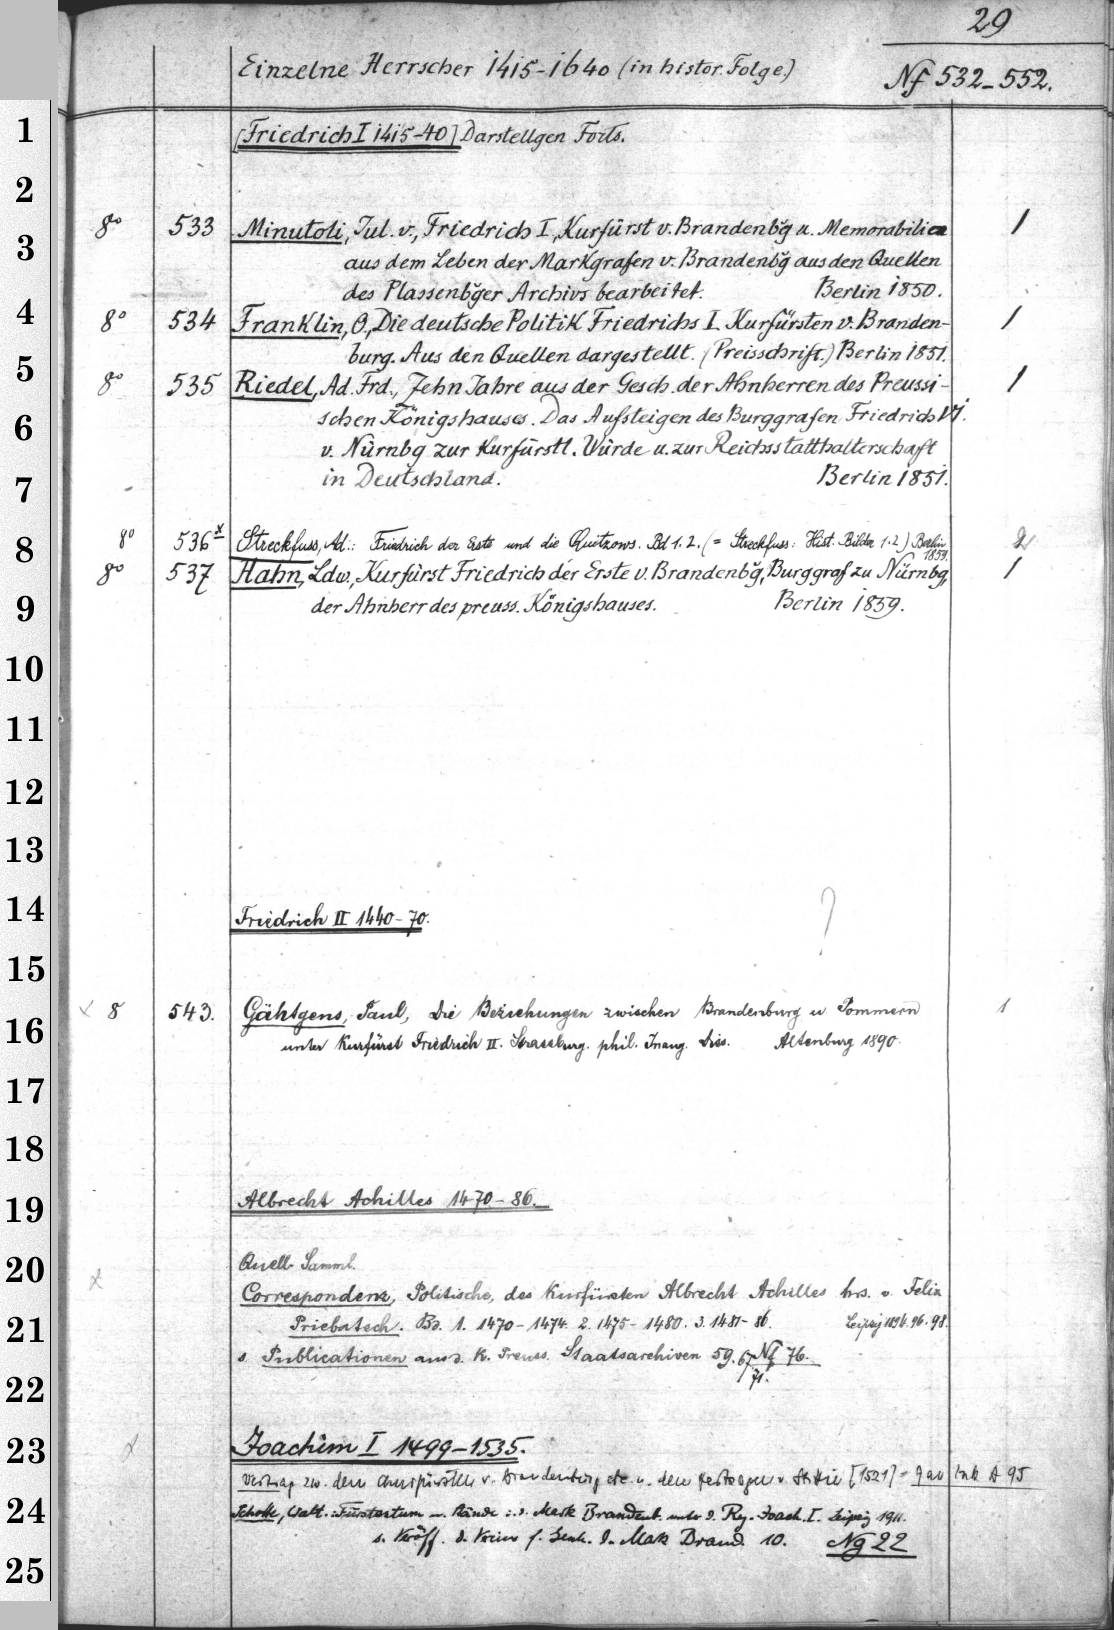 29
Einzelne Herrscher 1415-1640 (in histor. Folge.)
Nf 532-552.
[Friedrich I 1415-40] Darstellgen Forts.
8° 533 Minutoli, Jul. v., Friedrich I, Kurfürst v. Brandenbg u. Memorabilien 1
aus dem Leben der Markgrafen v. Brandenbg aus den Quellen
des Plassenbger Archivs bearbeitet. Berlin 1850.
8° 534 Franklin, O., Die deutsche Politik Friedrichs I. Kurfürsten v. Branden- 1
burg. Aus den Quellen dargestellt. (Preisschrift.) Berlin 1851.
8° 535 Riedel, Ad. Frd., Zehn Jahre aus der Gesch. der Ahnherren des Preussi- 1
schen Königshauses. Das Aufsteigen des Burggrafen Friedrich VI.
v. Nürnbg zur Kurfürstl. Würde u. zur Reichsstatthalterschaft
in Deutschland. Berlin 1851.
8° 536x Streckfuss, Ad.: Friedrich der Erste und die Quitzows. Bd 1. 2. (= Streckfuss: Hist. Bilder 1.2) Berlin 1859. 2
8° 537 Hahn, Ldw., Kurfürst Friedrich der Erste v. Brandenbg, Burggraf zu Nürnbg, 1
der Ahnherr des preuss. Königshauses. Berlin 1859.
Friedrich II 1440-70.
?
x 8 543. Gähtgens, Paul, Die Beziehungen zwischen Brandenburg u Pommern 1
unter Kurfürst Friedrich II. Strassburg. phil. Inaug. Diss. Altenburg 1890.
Albrecht Achilles 1470-86.
Quell. Samml.
x Correspondenz, Politische, des Kurfürsten Albrecht Achilles hrs. v. Felix
Priebatsch. Bd. 1. 1470-1474. 2. 1475-1480. 3. 1481-86. Leipzig 1894. 96. 98.
s. Publicationen aus d. K. Preuss. Staatsarchiven 59. 67. 71. Nf 76.
x Joachim I 1499-1535.
Vertrag zw. den Churfürsten v. Brandenburg etc. u. den Hertzogen v. Stettin [1521] = A 95
Schotte, Walt.: Fürstentum u. Stände i. d. Mark Brandenb. unter d. Reg. Joach. I. Leipzig 1911.
s. Veröff. d. Vereins f. Gesch. d. Mark Brand. 10. Ng 22
1
2
3
4
5
6
7
8
9
10
11
12
13
14
15
16
17
18
19
20
21
22
23
24
25